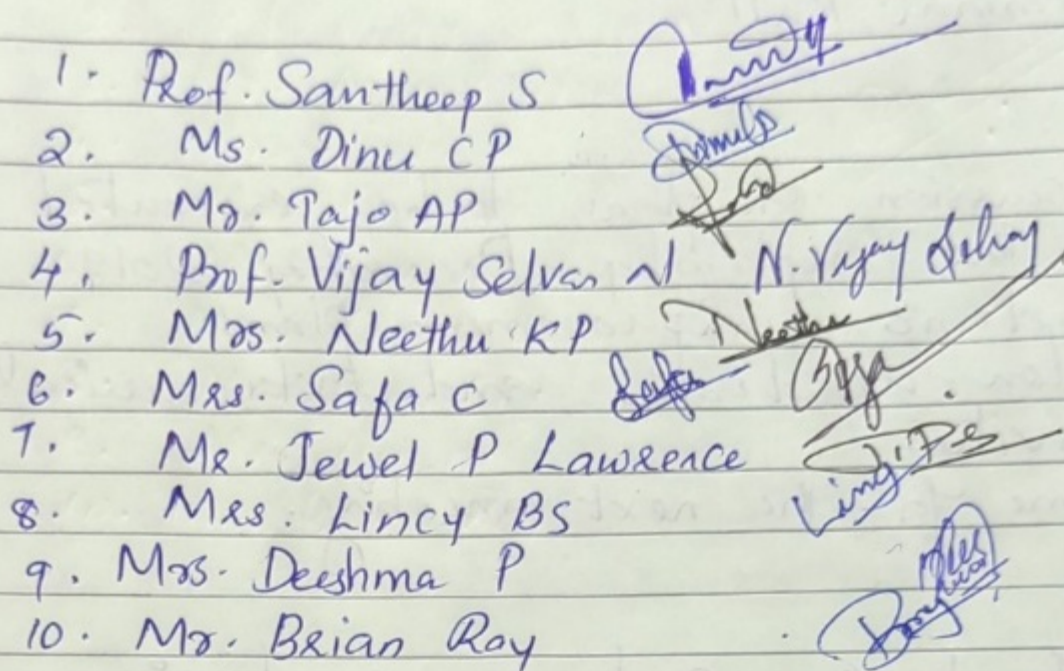 1. Prof. Santheep S
2. Ms. Dinu CP
3. Mr. Tajo AP
4. Prof. Vijay Selvan N N. Vijay
5. Mrs. Neethu KP Neethu
6. Mrs. Safa C Safa
7. Mr. Jewel P Lawrence
8. Mrs. Lincy BS
9. Mrs. Deeshma P
10. Mr. Brian Roy